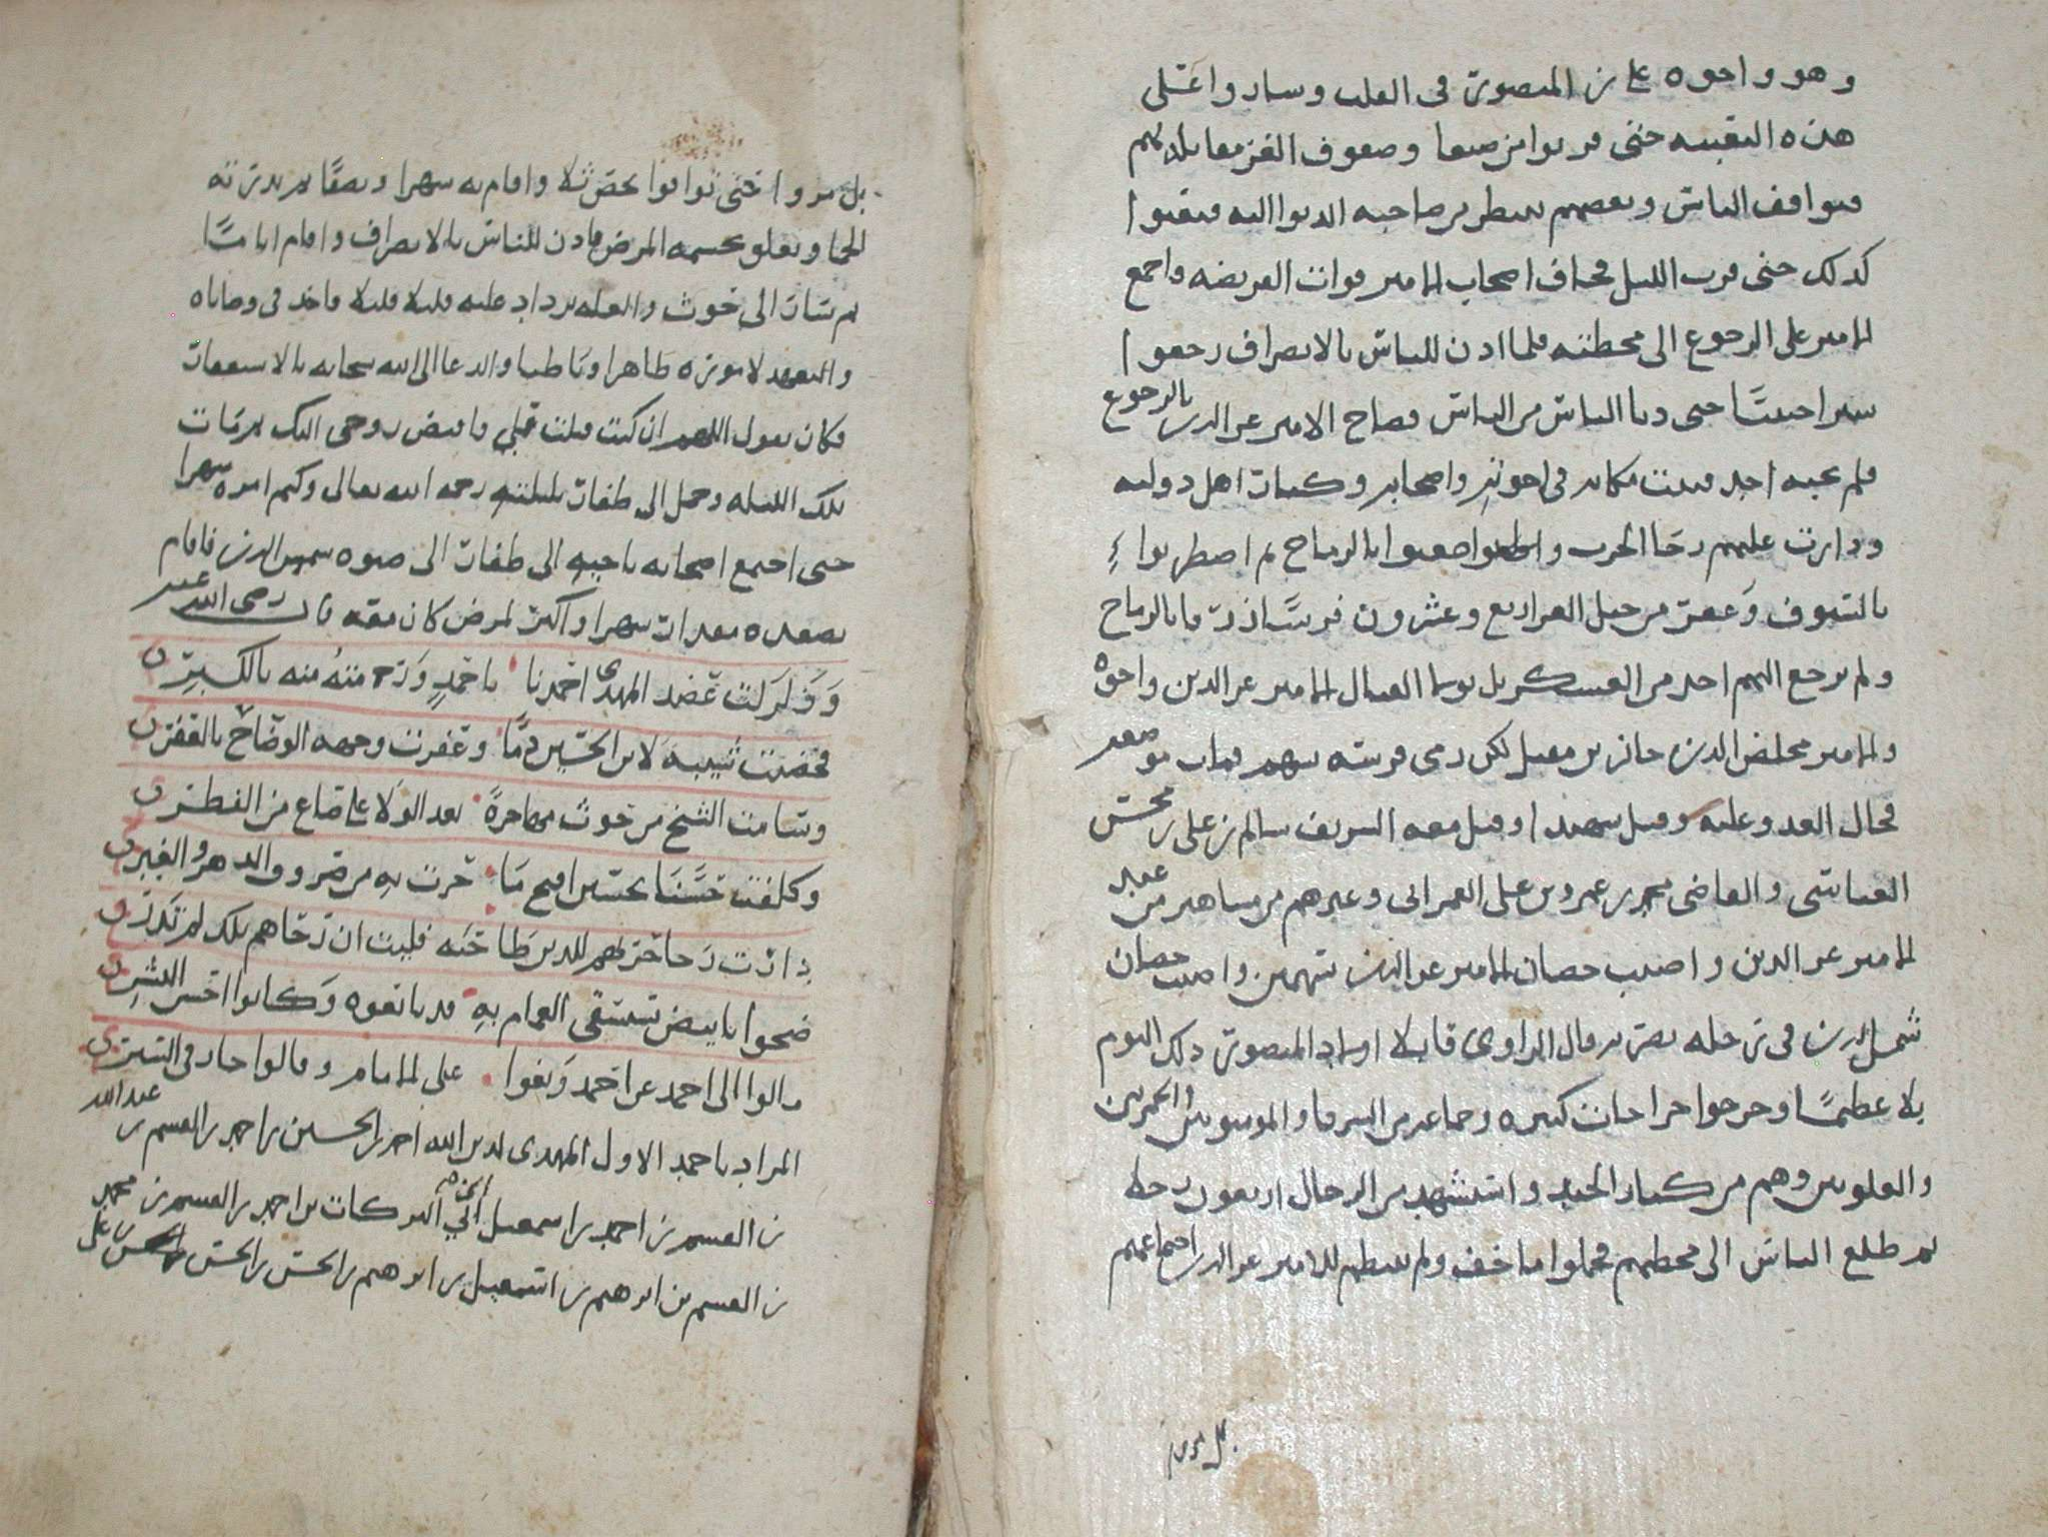 وهو واخوه علي بن المنصور في القلب وساروا على
هذه التعبيه حتى قربوا من صنعا وصفوف الغز مقابله لهم
فتواقف الناس وبعضهم ينتظر من صاحبه الدنوا اليه فبقيوا
كذلك حتى قرب الليل فخاف اصحاب الامير فوات الفريضه واجمع
الامير على الرجوع الى محطته فلما اذن للناس بالانصراف رجعوا
سيرا حثيثا حتى دنا الناس من الناس فصاح الامير عز الدين بالرجوع
فلم يجبه احد فثبت مكانه في اخوته واصحابه وكبار اهل دولته
ودارت عليهم رحا الحرب واطعنوا بالرماح ثم اضطربوا
بالسيوف وعقر من خيل الغز اربع وعشرون فرسا زرقا بالرماح
ولم يرجع اليهم احد من العسكر بل تولى القتال الامير عز الدين واخوه
والامير مخلص الدين جابر بن مقبل لكن رمى فرسه بسهم فمات موضعه
فحال العدو عليه وقتل شهيدا وقتل معه الشريف سالم بن علي بن محسن
العباسي والقاضي محمد بن عمرو بن علي العمراني وغيرهم من مشاهير من عند
الامير عز الدين واصيب حصان الامير عز الدين بسهمين واصيب حصان
شمس الدين في رجله بضربه قال الراوي قاتلا اولاد المنصور ذلك اليوم
بلا عظيما وجرحوا جراحات كثيره وجماعه من الشرفا والموسويين والحمزيين
والعلويين وهم من كبار الجند واستشهد من الرجال اربعون رجلا
ثم طلع الناس الى محطهم فحملوا ما خف ولم ينتظم للامير عز الدين اجتماعهم
بل مروا
بل مروا حتى توافوا بحضر ثلا واقام به شهرا ونصفا ثم تدثرته
الحما وتعلق بجسمه المرض فاذن للناس بالانصراف واقام اياما
ثم سار الى حوث والعله تزداد عليه قليلا قليلا واخذ في وصاياه
والتعهد لاموره ظاهرا وباطنا والدعا الى الله سبحانه بالاستغفار
فكان يقول اللهم ان كنت قبلت عملي فاقبض روحي اليك ثم مات
تلك الليله وحمل الى ظفار بليلته رحمه الله تعالى وكتم امره شهرا
حتى اجتمع اصحابه بناحيه الى ظفار الى صنوه شمس الدين فاقام
بعده مقدار شهرا واكثر لمرض كان معه قال رضي الله عنه
وزلزلت عضد المهدي احمدنا باحمد ورمته منه بالكبر
فخضبت شيبه لابن الحسين دما وعفرت وجهه الوضاح بالعفر
وسامت الشيخ من حوث مهاجره بعد الولا على صاع من الفطر
وكلفت حسنا بحسين اقبح ما جرت به من صروف الدهر والغير
دارت رحا حربهم للدين طاحنه فليت ان رحاهم تلك لم تدر
ضحوا بابيض تستسقى الغمام به قد بايعوه وكانوا اخس البشر
مالوا الى احمد عن احمد وبغوا على الامام وقالوا جار في السير
المراد باحمد الاول المهدي لدين الله احمد بن الحسين بن احمد بن القسم بن عبد الله
بن القسم بن احمد بن اسمعيل ابي البركات بن احمد بن القسم بن محمد
بن القسم بن ابرهيم بن اسمعيل بن ابرهيم بن الحسن بن الحسن بن علي